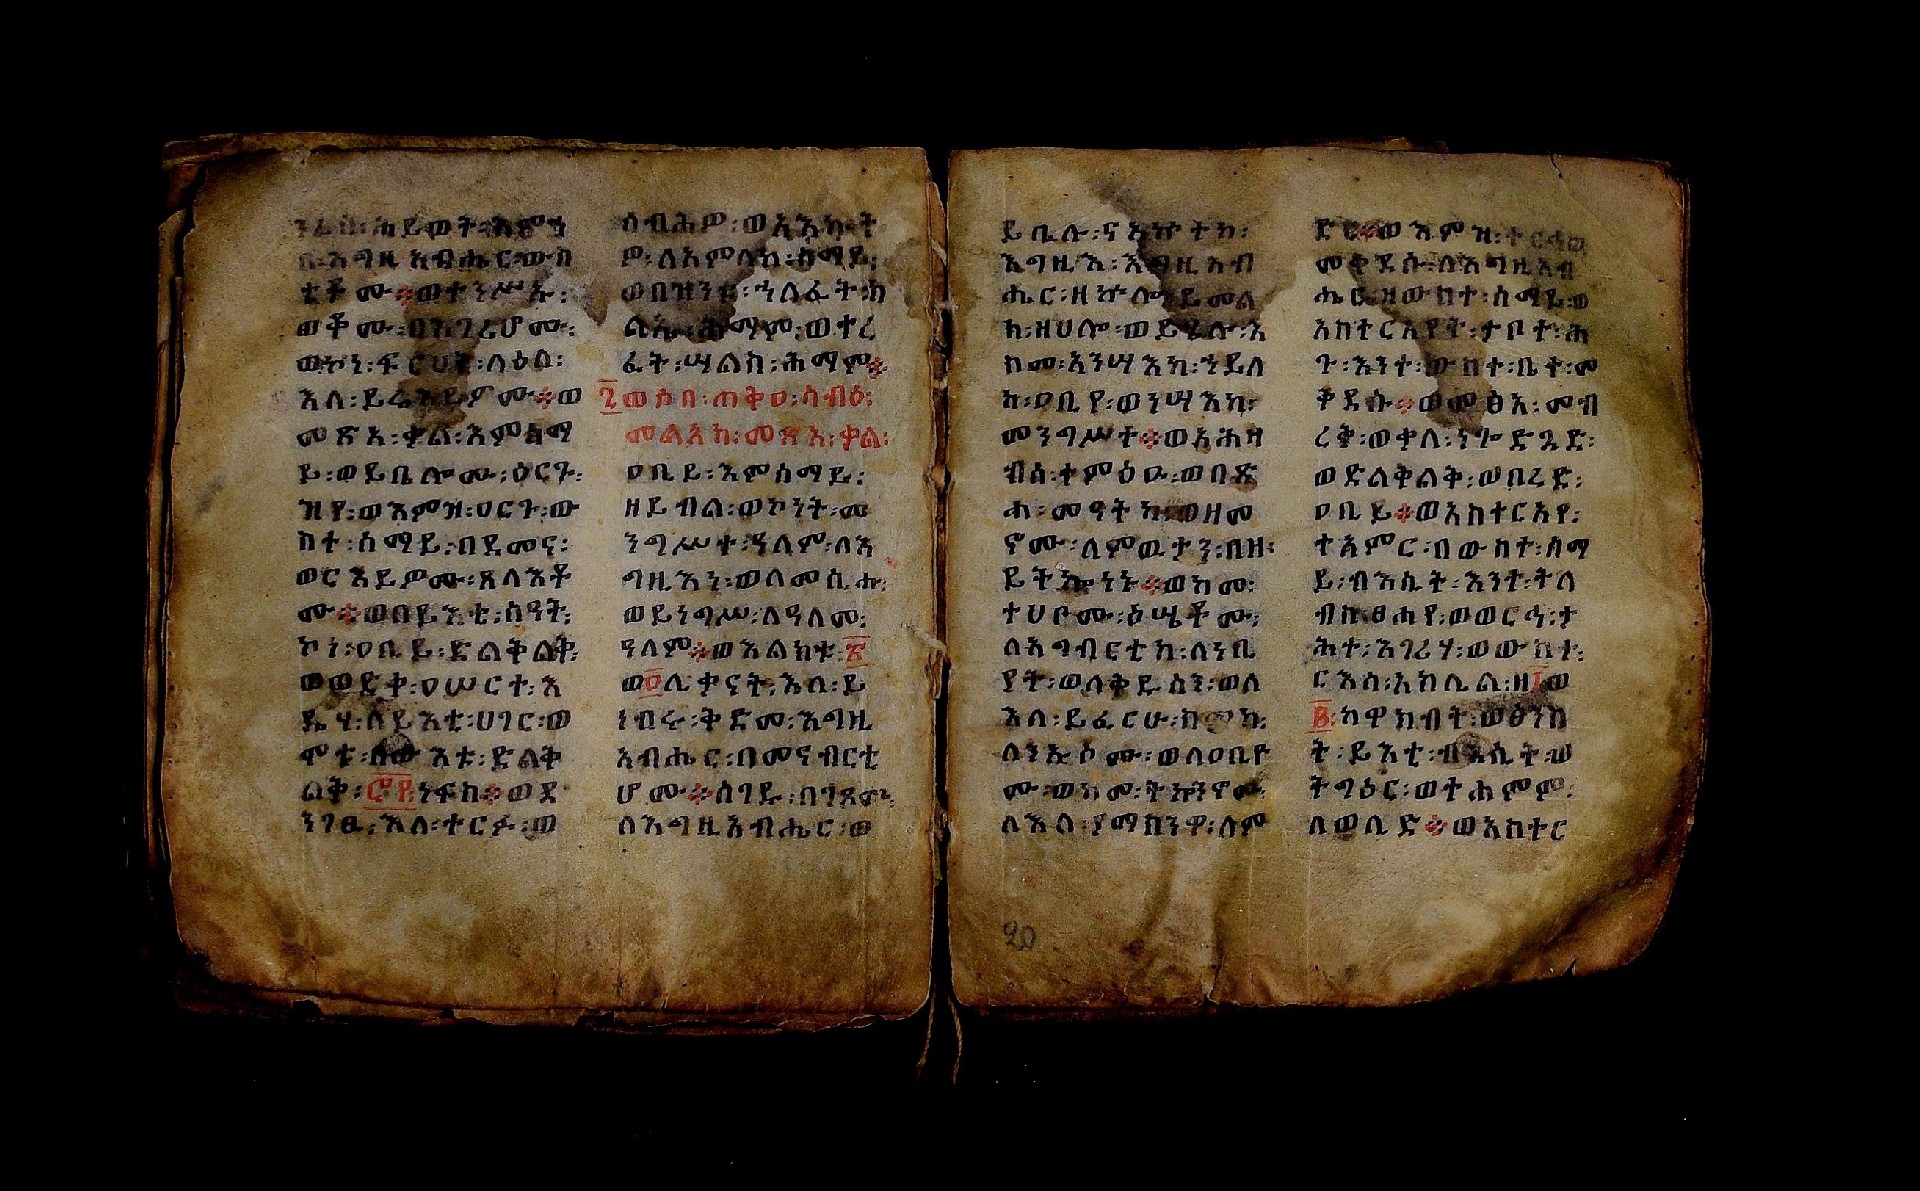 ንፈሰ፡ሕይወት፡እምኀ
በ፡እግዚአብሔር፡ውስ
ቴቶሙ፨ወተንሥኡ፡
ወቆሙ፡በእገሪሆሙ፡
ወኮነ፡ፍርሀት፡ለዕለ፡
እለ፡ይሬእይዎሙ፨ወ
መጽአ፡ቃል፡እምሰማ
ይ፡ወይቤሎሙ፡ዕርጉ፡
ዝየ፡ወእምዝ፡ዐርጉ፡ው
ስተ፡ሰማይ፡በደመና፡
ወርእይዎሙ፡ጸላእቶ
ሙ፨ወበይእቲ፡ሰዓት፡
ኮነ፡ዐቢይ፡ድልቅልቅ፡
ወወድቀ፡ዐሠርተ፡እ
ዴሃ፡ለይእቲ፡ሀገር፡ወ
ሞቱ፡በውእቱ፡ድልቅ
ልቅ፡፸፻ነፍስ፨ወደ
ንገፁ፡እለ፡ተርፉ፡ወ
ሰብሕዎ፡ወአእኰት
ዎ፡ለአምላከ፡ሰማይ፡
ወበዝንቱ፡ኀለፈት፡ከ
ልኡ፡ሕማም፡ወተረ
ፈት፡ሣልስ፡ሕማም፨
፯ወሶበ፡ጠቅዐ፡ሳብዕ፡
መልአክ፡መጽአ፡ቃል፡
ዐቢይ፡እምሰማይ፡
ዘይብል፡ወኮነት፡መ
ንግሥተ፡ዓለም፡ለእ
ግዚእነ፡ወለመሲሑ፡
ወይነግሥ፡ለዓለመ፡
ዓለም፨ወእልክቱ፡፳
ወ፬ሊቃናት፡እለ፡ይ
ነብሩ፡ቅድመ፡እግዚ
አብሔር፡በመናብርቲ
ሆሙ፨ሰገዱ፡በገጾሙ፡
ለእግዚአብሔር፡ወ
ይቤሉ፡ናአኵተከ፡
እግዚኦ፡እግዚአብ
ሔር፡ዘኵሎ፡ይመል
ክ፡ዘሀሎ፡ወይሄሉ፡እ
ስመ፡አንሣእከ፡ኀይለ
ከ፡ዐቢየ፡ወነሣእከ፡
መንግሥተ፨ወአሕዛ
ብሰ፡ተምዕዑ፡ወበጽ
ሐ፡መዓትከ፡ወዘመ
ኖሙ፡ለምዉታን፡በዘ፡
ይትኴነኑ፨ወከመ፡
ተሀቦሙ፡ዕሤቶሙ፡
ለአግብርቲከ፡ለነቢ
ያት፡ወለቅዱሳን፡ወለ
እለ፡ይፈርሁ፡ስመከ፡
ለንኡሶሙ፡ወለዐቢዮ
ሙ፡ወከመ፡ትኰንኖሙ፡
ለእለ፡ያማስንዋ፡ለም
ድር፨ወእምዝ፡ተርኅወ
መቅደሱ፡ለእግዚአብ
ሔር፡ዘውስተ፡ሰማይ፡ወ
አስተርአየት፡ታቦተ፡ሕ
ጉ፡እንተ፡ውስተ፡ቤተ፡መ
ቅደሱ፨ወመፅአ፡መብ
ረቅ፡ወቃለ፡ነጐድጓድ፡
ወድልቅልቅ፡ወበረድ፡
ዐቢይ፨ወአስተርአየ፡
ተአምር፡በውስተ፡ሰማ
ይ፡ብእሲት፡እንተ፡ትለ
ብስ፡ፀሐየ፡ወወርኅ፡ታ
ሕተ፡እገሪሃ፡ወውስተ፡
ርእሳ፡አክሊል፡ዘ፲ወ
፪፡ከዋክብት፡ወፅንስ
ት፡ይእቲ፡ብእሲት፡ወ
ትግዕር፡ወተሐምም፡
ለወሊድ፨ወአስተር
20